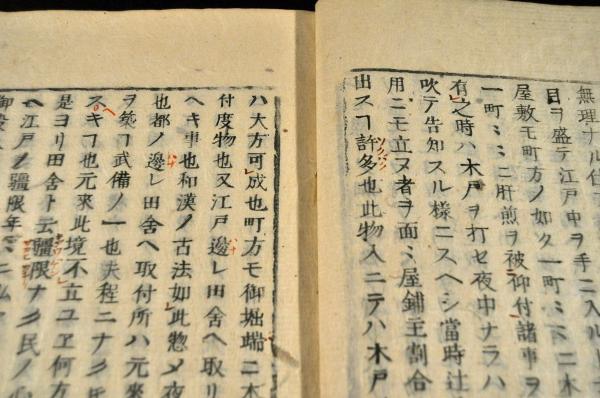 無理ナル仕
目ヲ盛テ江戸中ヲ手ニ入ルト
屋敷モ町方ノ如ク一町ミミニ木
一町ミミニ肝煎ヲ被仰付諸事ヲ
有之時ハ木戸ヲ打セ夜中ナラハ
吹テ告知スル樣ニスヘシ當時辻
用ニモ立ヌ者ヲ面ミ屋鋪主割合
出スコ許多也此物入ニテハ木戸
ハ大方可成也町方モ御堀端ニ木
付度物也又江戸邊レ田舍ヘ取リ
ヘキ事也和漢ノ古法如此惣メ夜
也都ノ邊レ田舍ヘ取付所ハ元來
ヲ築コ武備ノ一也夫程ニナクモ
スキコ也元來此境不立ユヱ何方
是ヨリ田舍ト云疆限ナクク民ノ心
モ江戸ノ疆限年ミニ弘